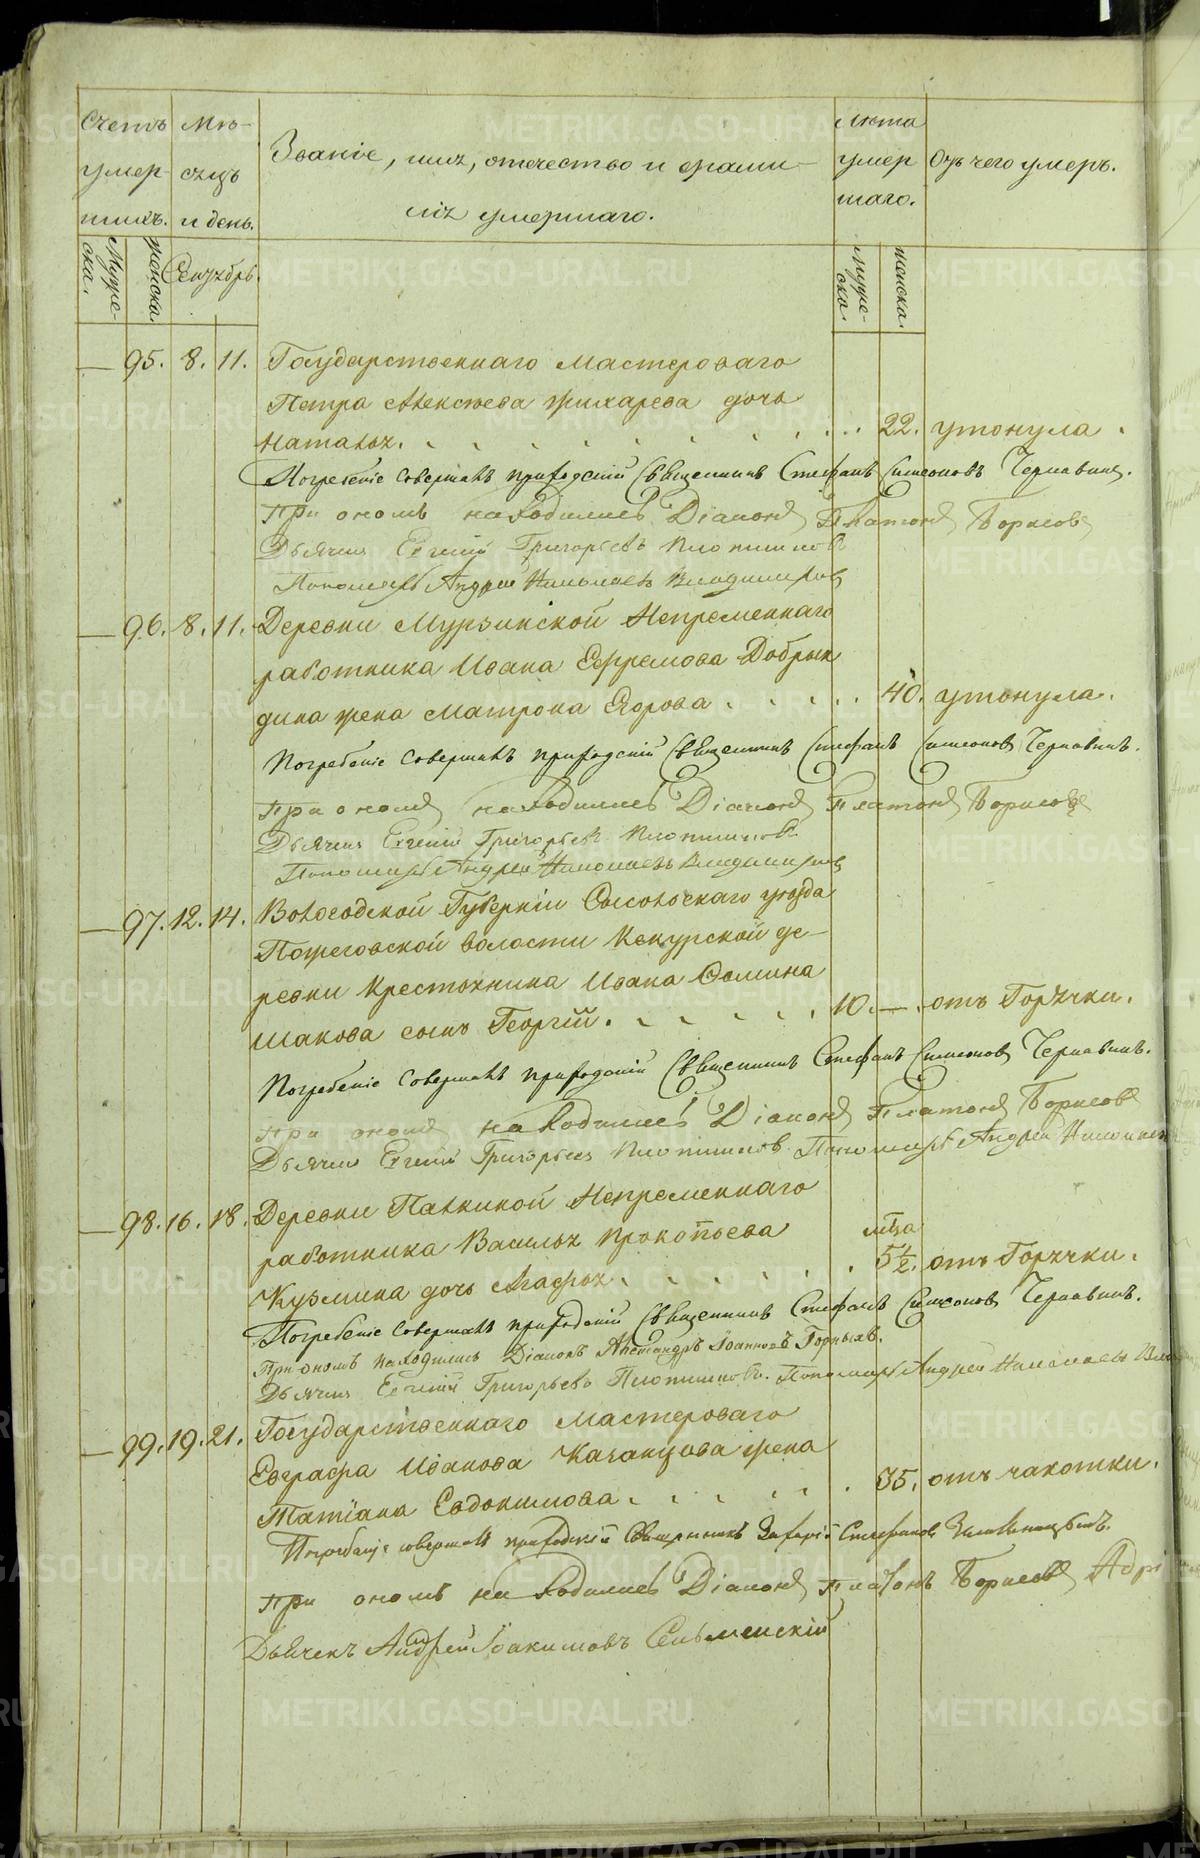 Счетъ умершихъ.
Мѣсяцъ и день.
Званіе, имя, отечество и фамилія умершаго.
Лѣта умершаго.
Отъ чего умеръ.
Мужеска.
женска.
Сентябрь.
Мужеска.
женска.
— 95. 8. 11. Государственнаго мастероваго
Петра Алексѣева Жихарева дочь
Наталья. 22. утонула.
Погребеніе совершалъ приходскій Священникъ Стефанъ Симеоновъ Чернавинъ.
При ономъ находились Діаконъ Платонъ Борисовъ
Дьячекъ Евгеній Григорьевъ Плотниковъ
Пономарь Андрей Николаевъ Владимировъ
— 96. 8. 11. Деревни Мурзинской Непременнаго
работника Ивана Ефремова Добрын
дина жена Матрона Егорова 40. утонула.
Погребеніе совершалъ приходскій Священникъ Стефанъ Симеоновъ Чернавинъ.
При ономъ находились Діаконъ Платонъ Борисовъ
Дьячекъ Евгеній Григорьевъ Плотниковъ
Пономарь Андрей Николаевъ Владимировъ
— 97. 12. 14. Вологодской Губерніи Сысольскаго уѣзда
Пожеговской волости Кекурской де-
ревни Крестьянина Ивана
Шакова сынъ Георгій. 10. — отъ Горячки.
Погребеніе совершалъ приходскій Священникъ Стефанъ Симеоновъ Чернавинъ.
При ономъ находились Діаконъ Платонъ Борисовъ
Дьячекъ Евгеній Григорьевъ Плотниковъ Пономарь Андрей Николаевъ
— 98. 16. 18. Деревни Палкиной Непременнаго
работника Василья Прокопьева мѣца
Кузмина дочь Агафья. 5½. отъ Горячки.
Погребеніе совершалъ приходскій Священникъ Стефанъ Симеоновъ Чернавинъ.
При ономъ находились Діаконъ Александръ Іоанновъ Горныхъ.
Дьячекъ Евгеній Григорьевъ Плотниковъ. Пономарь Андрей Николаевъ
— 99. 19. 21. Государственнаго мастероваго
Евграфа Иванова Казанцова жена
Татіана Евдокимова. 35. отъ чахотки.
Погребеніе совершалъ приходскій Священникъ Захарій Стефановъ
При ономъ находились Діаконъ Платонъ Борисовъ
Дьячекъ Андрей Іоакимовъ Сельменскій
METRIKI.GASO-URAL.RU